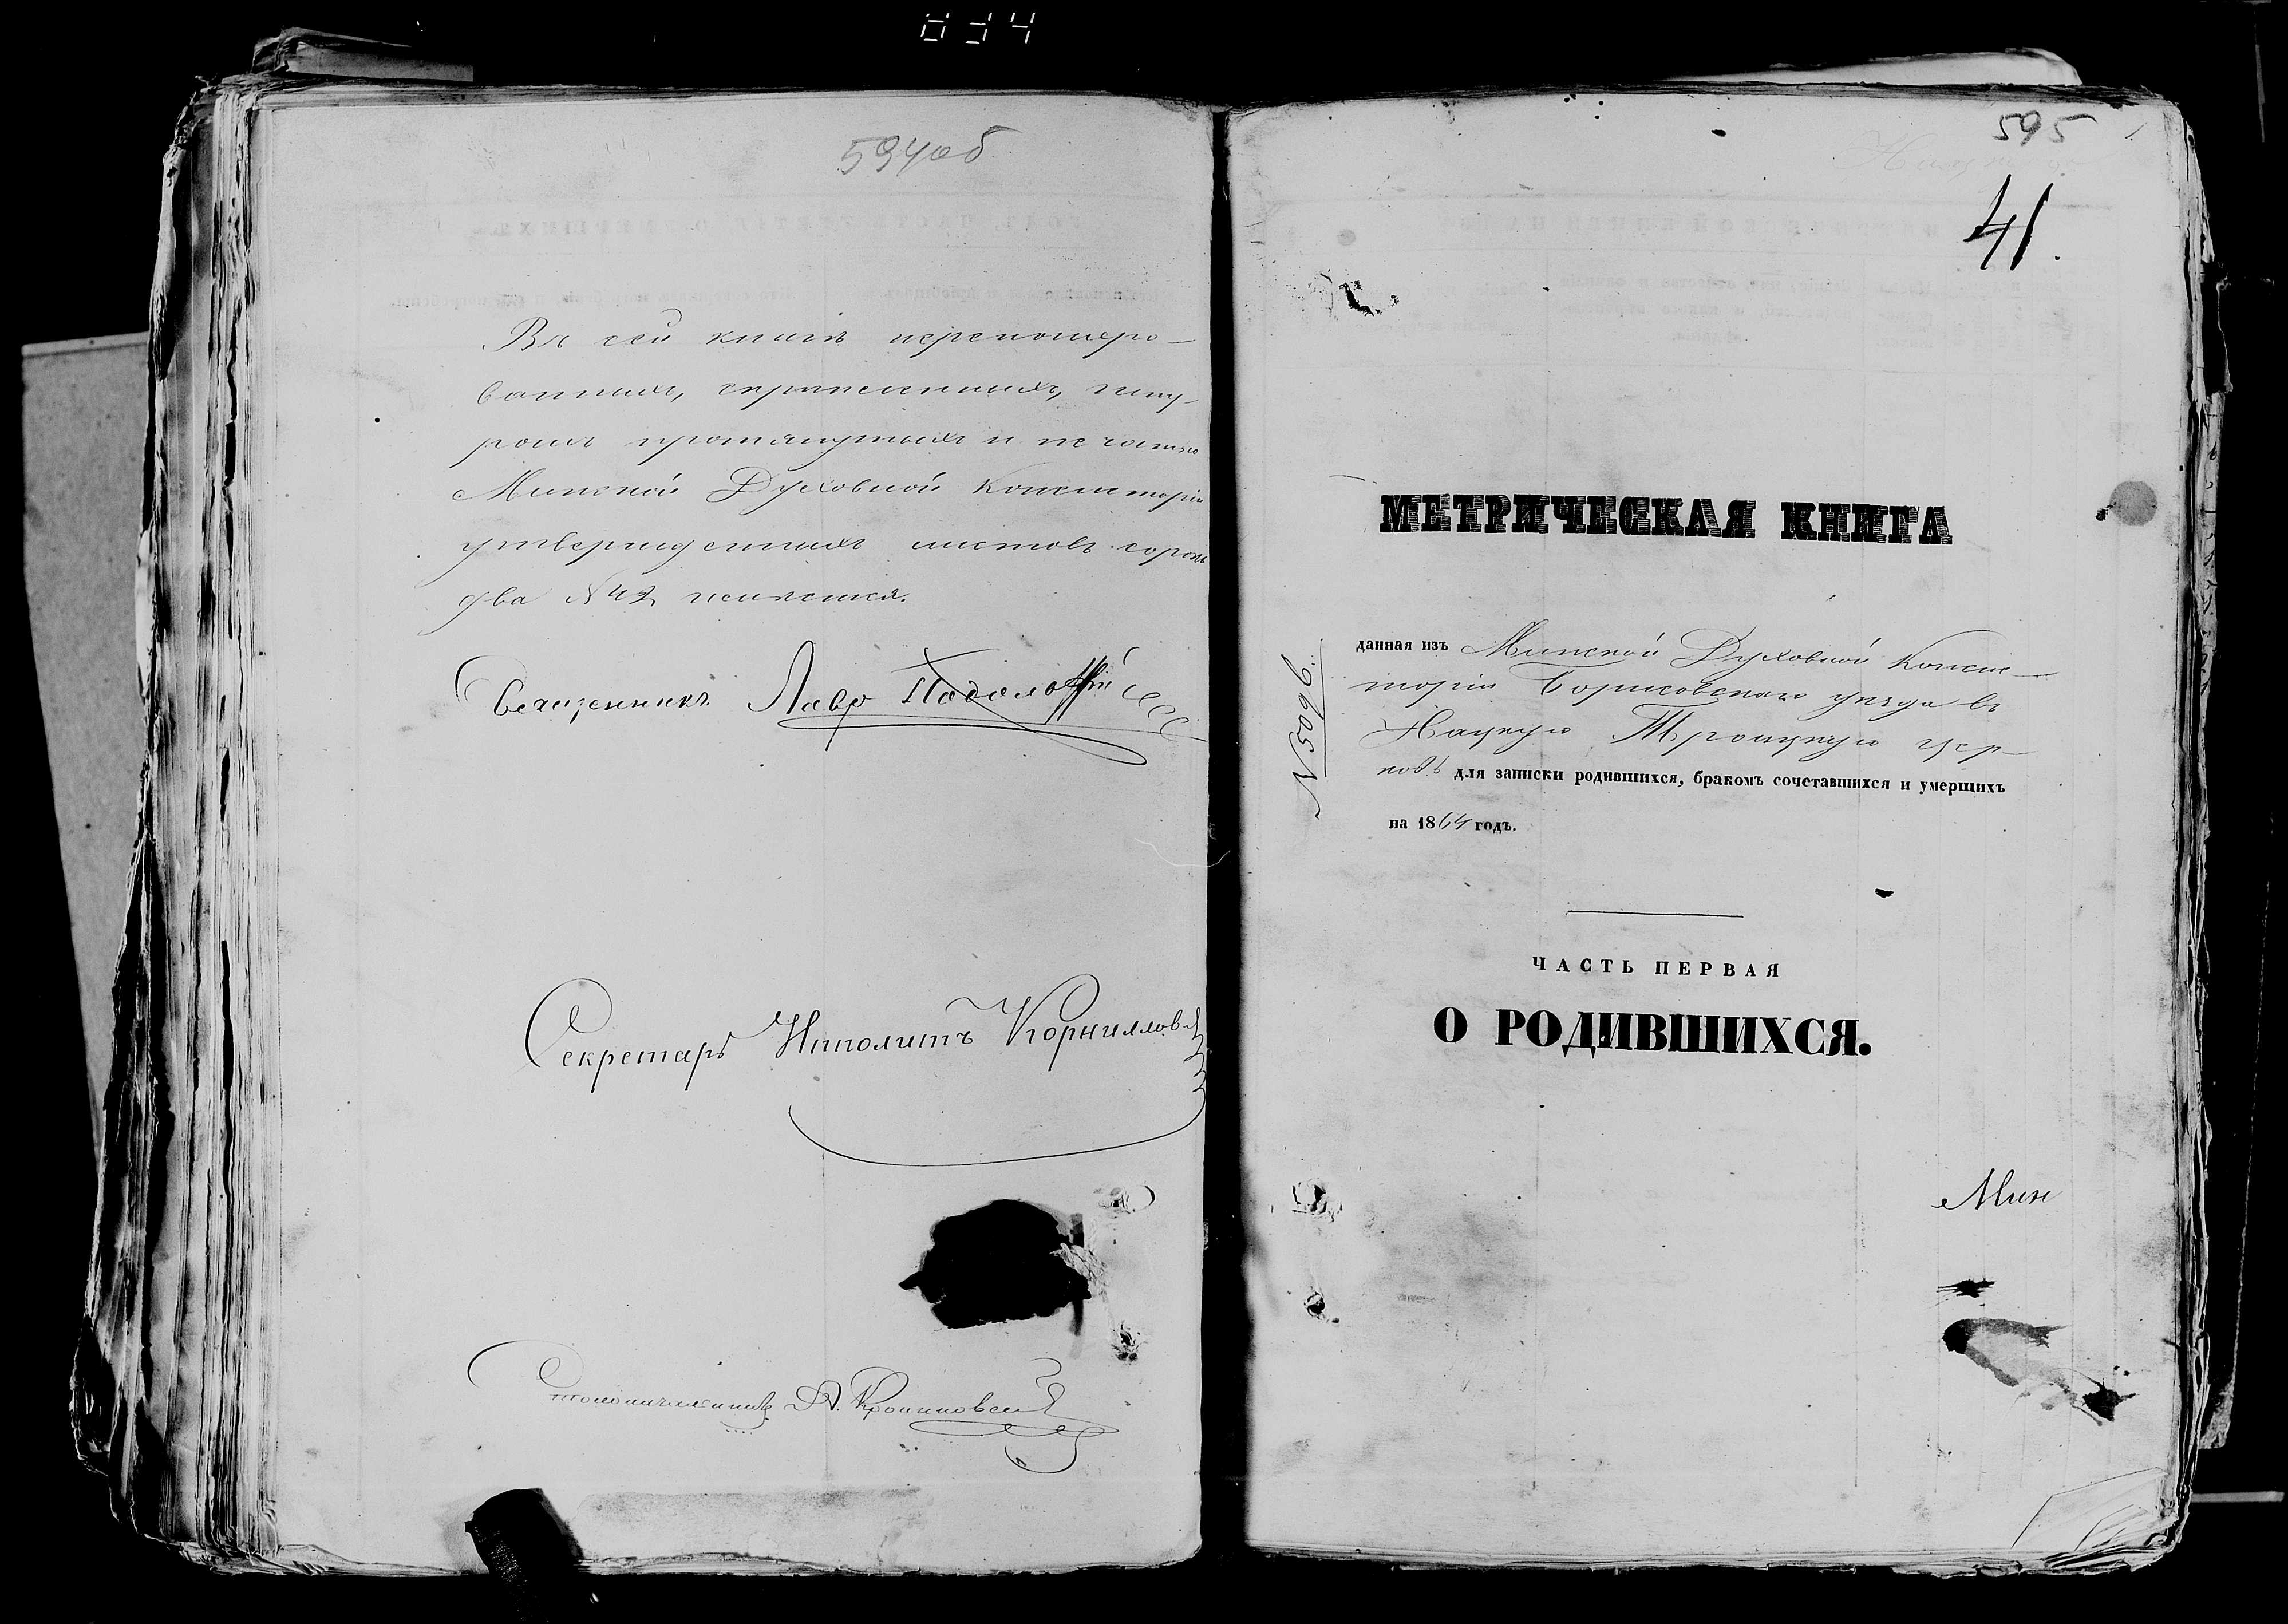 594 об
Въ сей книгѣ перенумеро-
ванныхъ, скрѣпленныхъ, шну-
ромъ протянутыхъ и печатью
Минской Духовной Консисторіи
утвержденныхъ листовъ сорокъ
два № 42 имѣется.
Священникъ Лавр
Секретарь Ипполитъ Корниллов
Столоначальникъ А.
595
41.
МЕТРИЧЕСКАЯ КНИГА
№ 5096.
данная изъ Минской Духовной Консис-
торіи Борисовскаго уѣзда въ
Нацкую Троицкую цер-
ковь для записки родившихся, бракомъ сочетавшихся и умерщихъ
на 1864 годъ.
ЧАСТЬ ПЕРВАЯ
О РОДИВШИХСЯ.
Мин